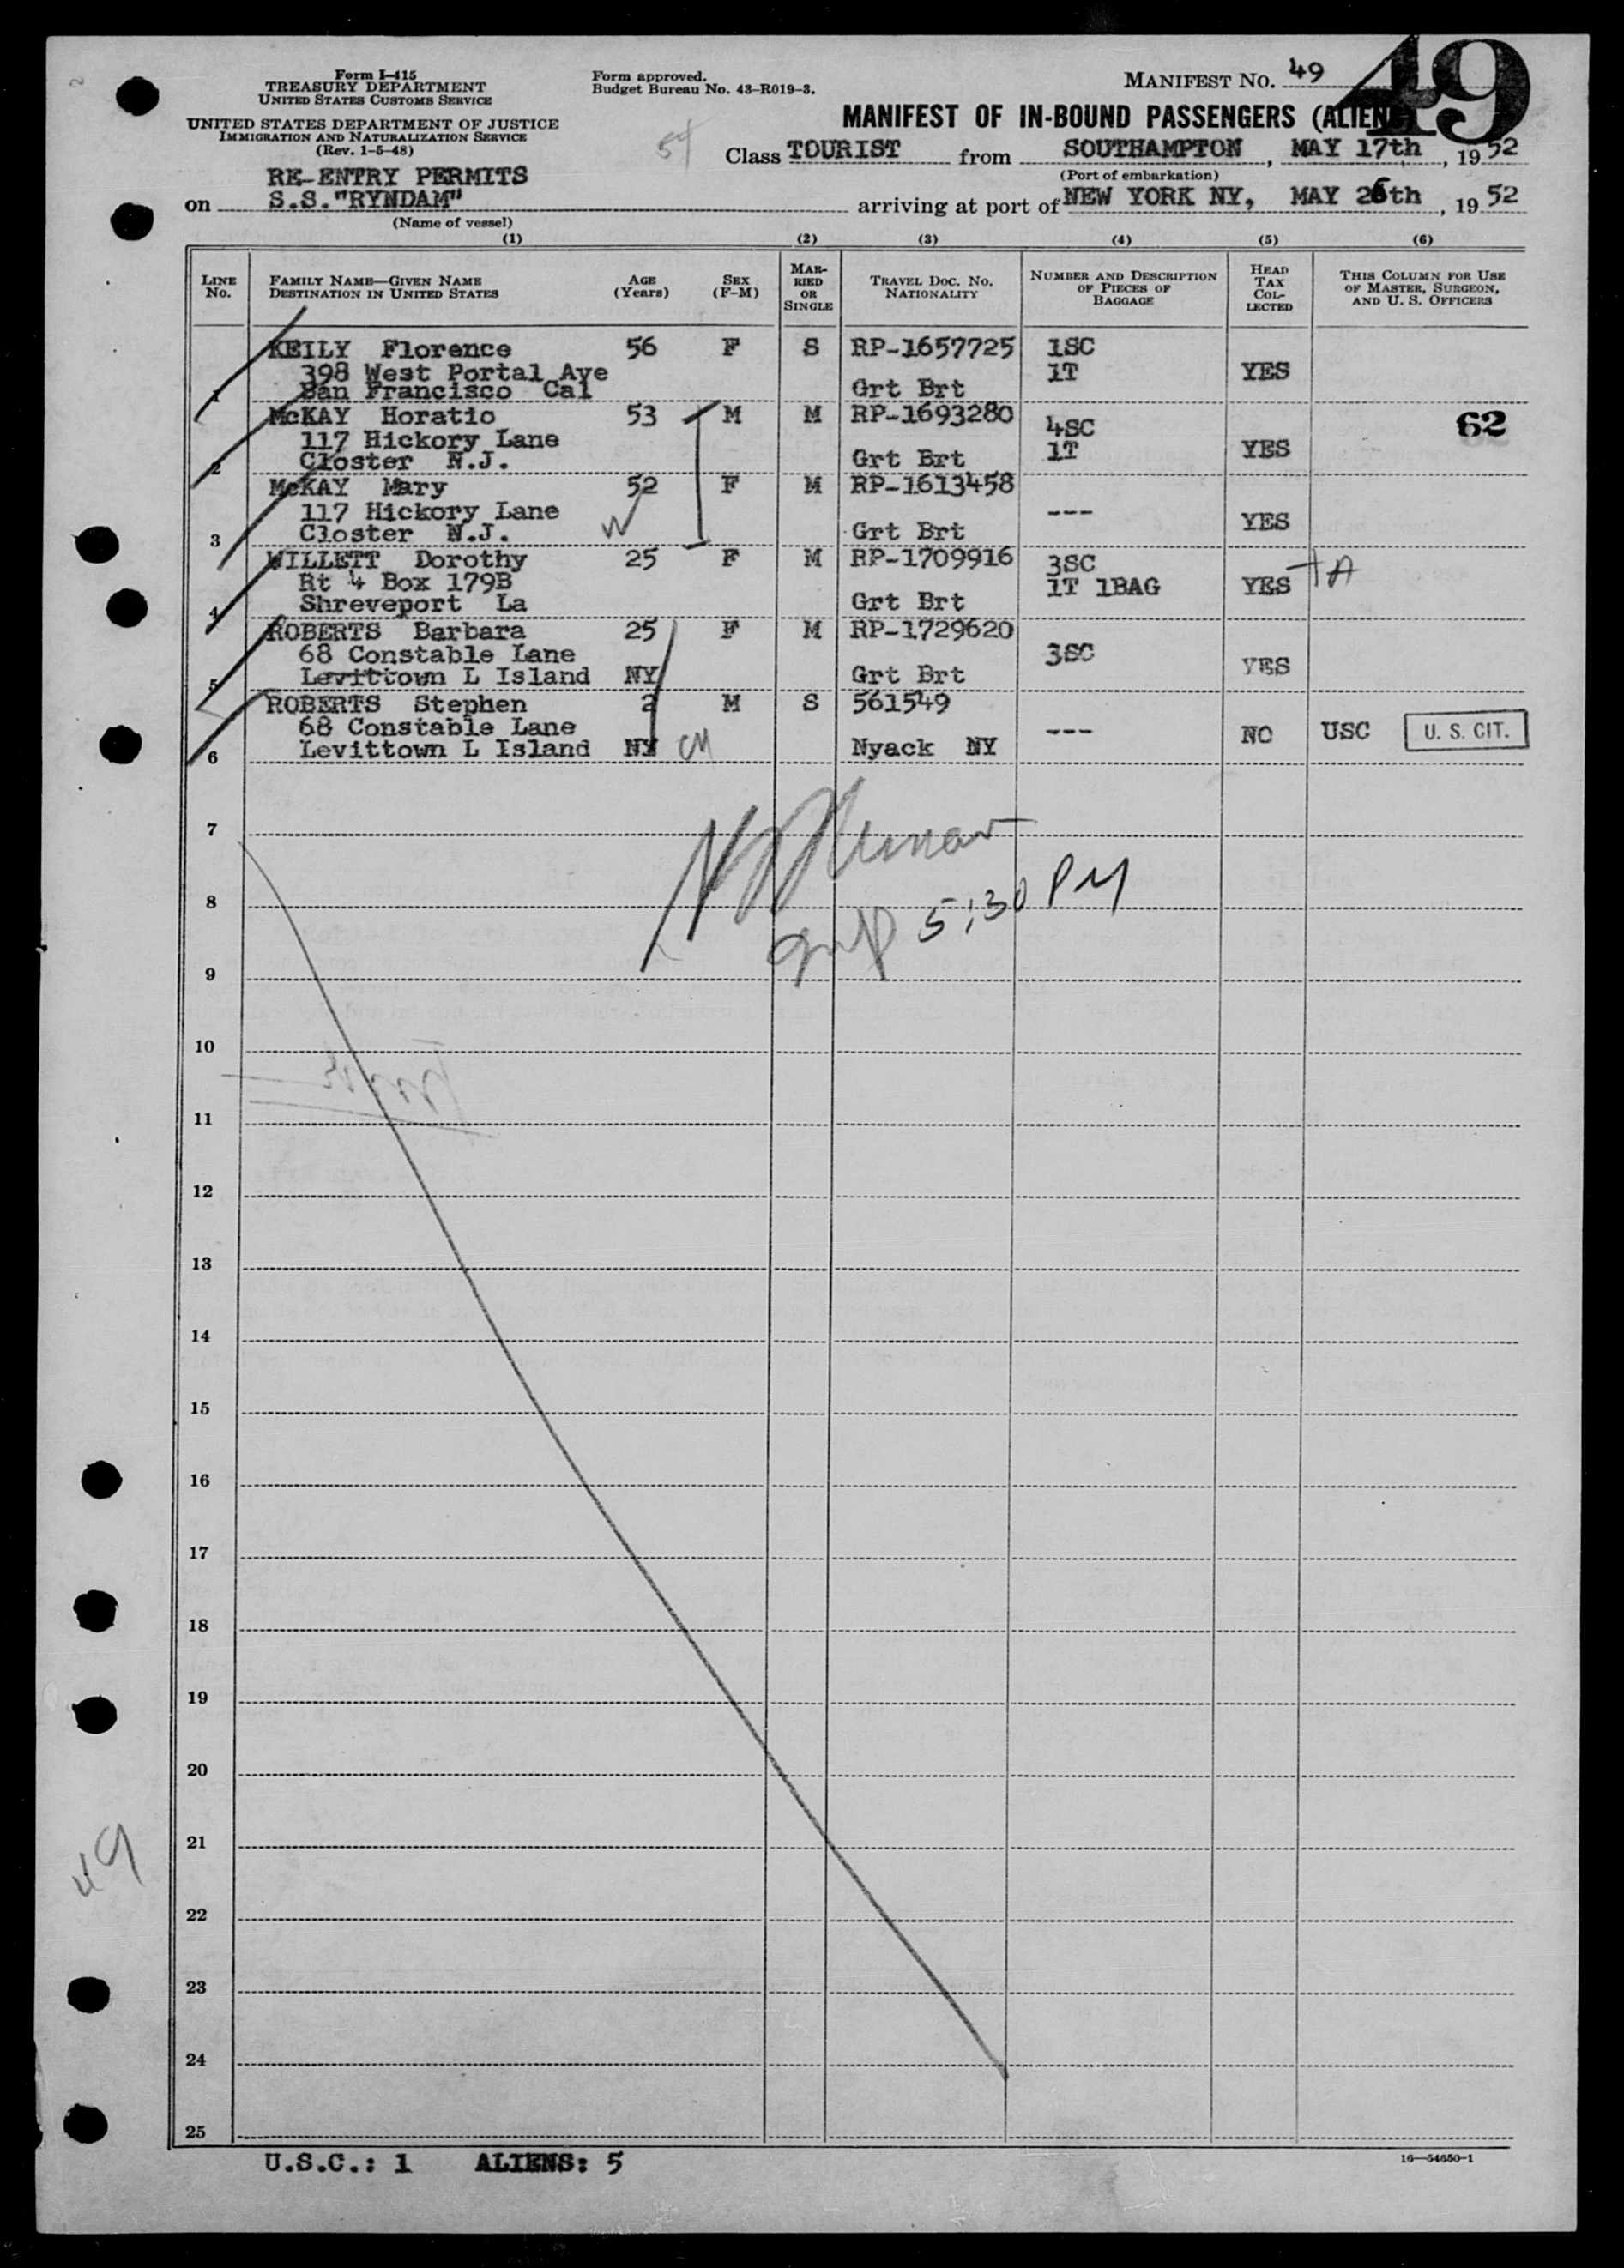 Form I-415
TREASURY DEPARTMENT
UNITED STATES CUSTOMS SERVICE
UNITED STATES DEPARTMENT OF JUSTICE
IMMIGRATION AND NATURALIZATION SERVICE
(Rev. 1-5-48)
Form approved.
Budget Bureau No. 43-R019-3.
MANIFEST NO. 49
49
MANIFEST OF IN-BOUND PASSENGERS (ALIEN
54
Class TOURIST from SOUTHAMPTON, MAY 17th, 1952
(Port of embarkation)
RE-ENTRY PERMITS
on S.S."RYNDAM" arriving at port of NEW YORK NY, MAY 26th, 1952
(Name of vessel)
(1) (2) (3) (4) (5) (6)
LINE No. FAMILY NAME—GIVEN NAME DESTINATION IN UNITED STATES AGE (Years) SEX (F-M) MARRIED OR SINGLE TRAVEL DOC. NO. NATIONALITY NUMBER AND DESCRIPTION OF PIECES OF BAGGAGE HEAD TAX COLLECTED THIS COLUMN FOR USE OF MASTER, SURGEON, AND U. S. OFFICERS
KEILY Florence 56 F S RP-1657725 1SC
398 West Portal Ave 1T YES
1 San Francisco Cal Grt Brt
McKAY Horatio 53 M M RP-1693280 62
117 Hickory Lane 4SC
2 Closter N.J. Grt Brt 1T YES
McKAY Mary 52 F M RP-1613458
117 Hickory Lane ---
3 Closter N.J. Grt Brt YES
WILLETT Dorothy 25 F M RP-1709916 3SC
Rt 4 Box 179B 1T 1BAG YES
4 Shreveport La Grt Brt
ROBERTS Barbara 25 F M RP-1729620
68 Constable Lane 3SC
5 Levittown L Island NY Grt Brt YES
ROBERTS Stephen 2 M S 561549
68 Constable Lane --- NO USC U. S. CIT.
6 Levittown L Island NY Nyack NY
7
8 5:30 PM
9
10
11
12
13
14
15
16
17
18
19
20
21
49
22
23
24
25
U.S.C.: 1 ALIENS: 5
16—54650-1